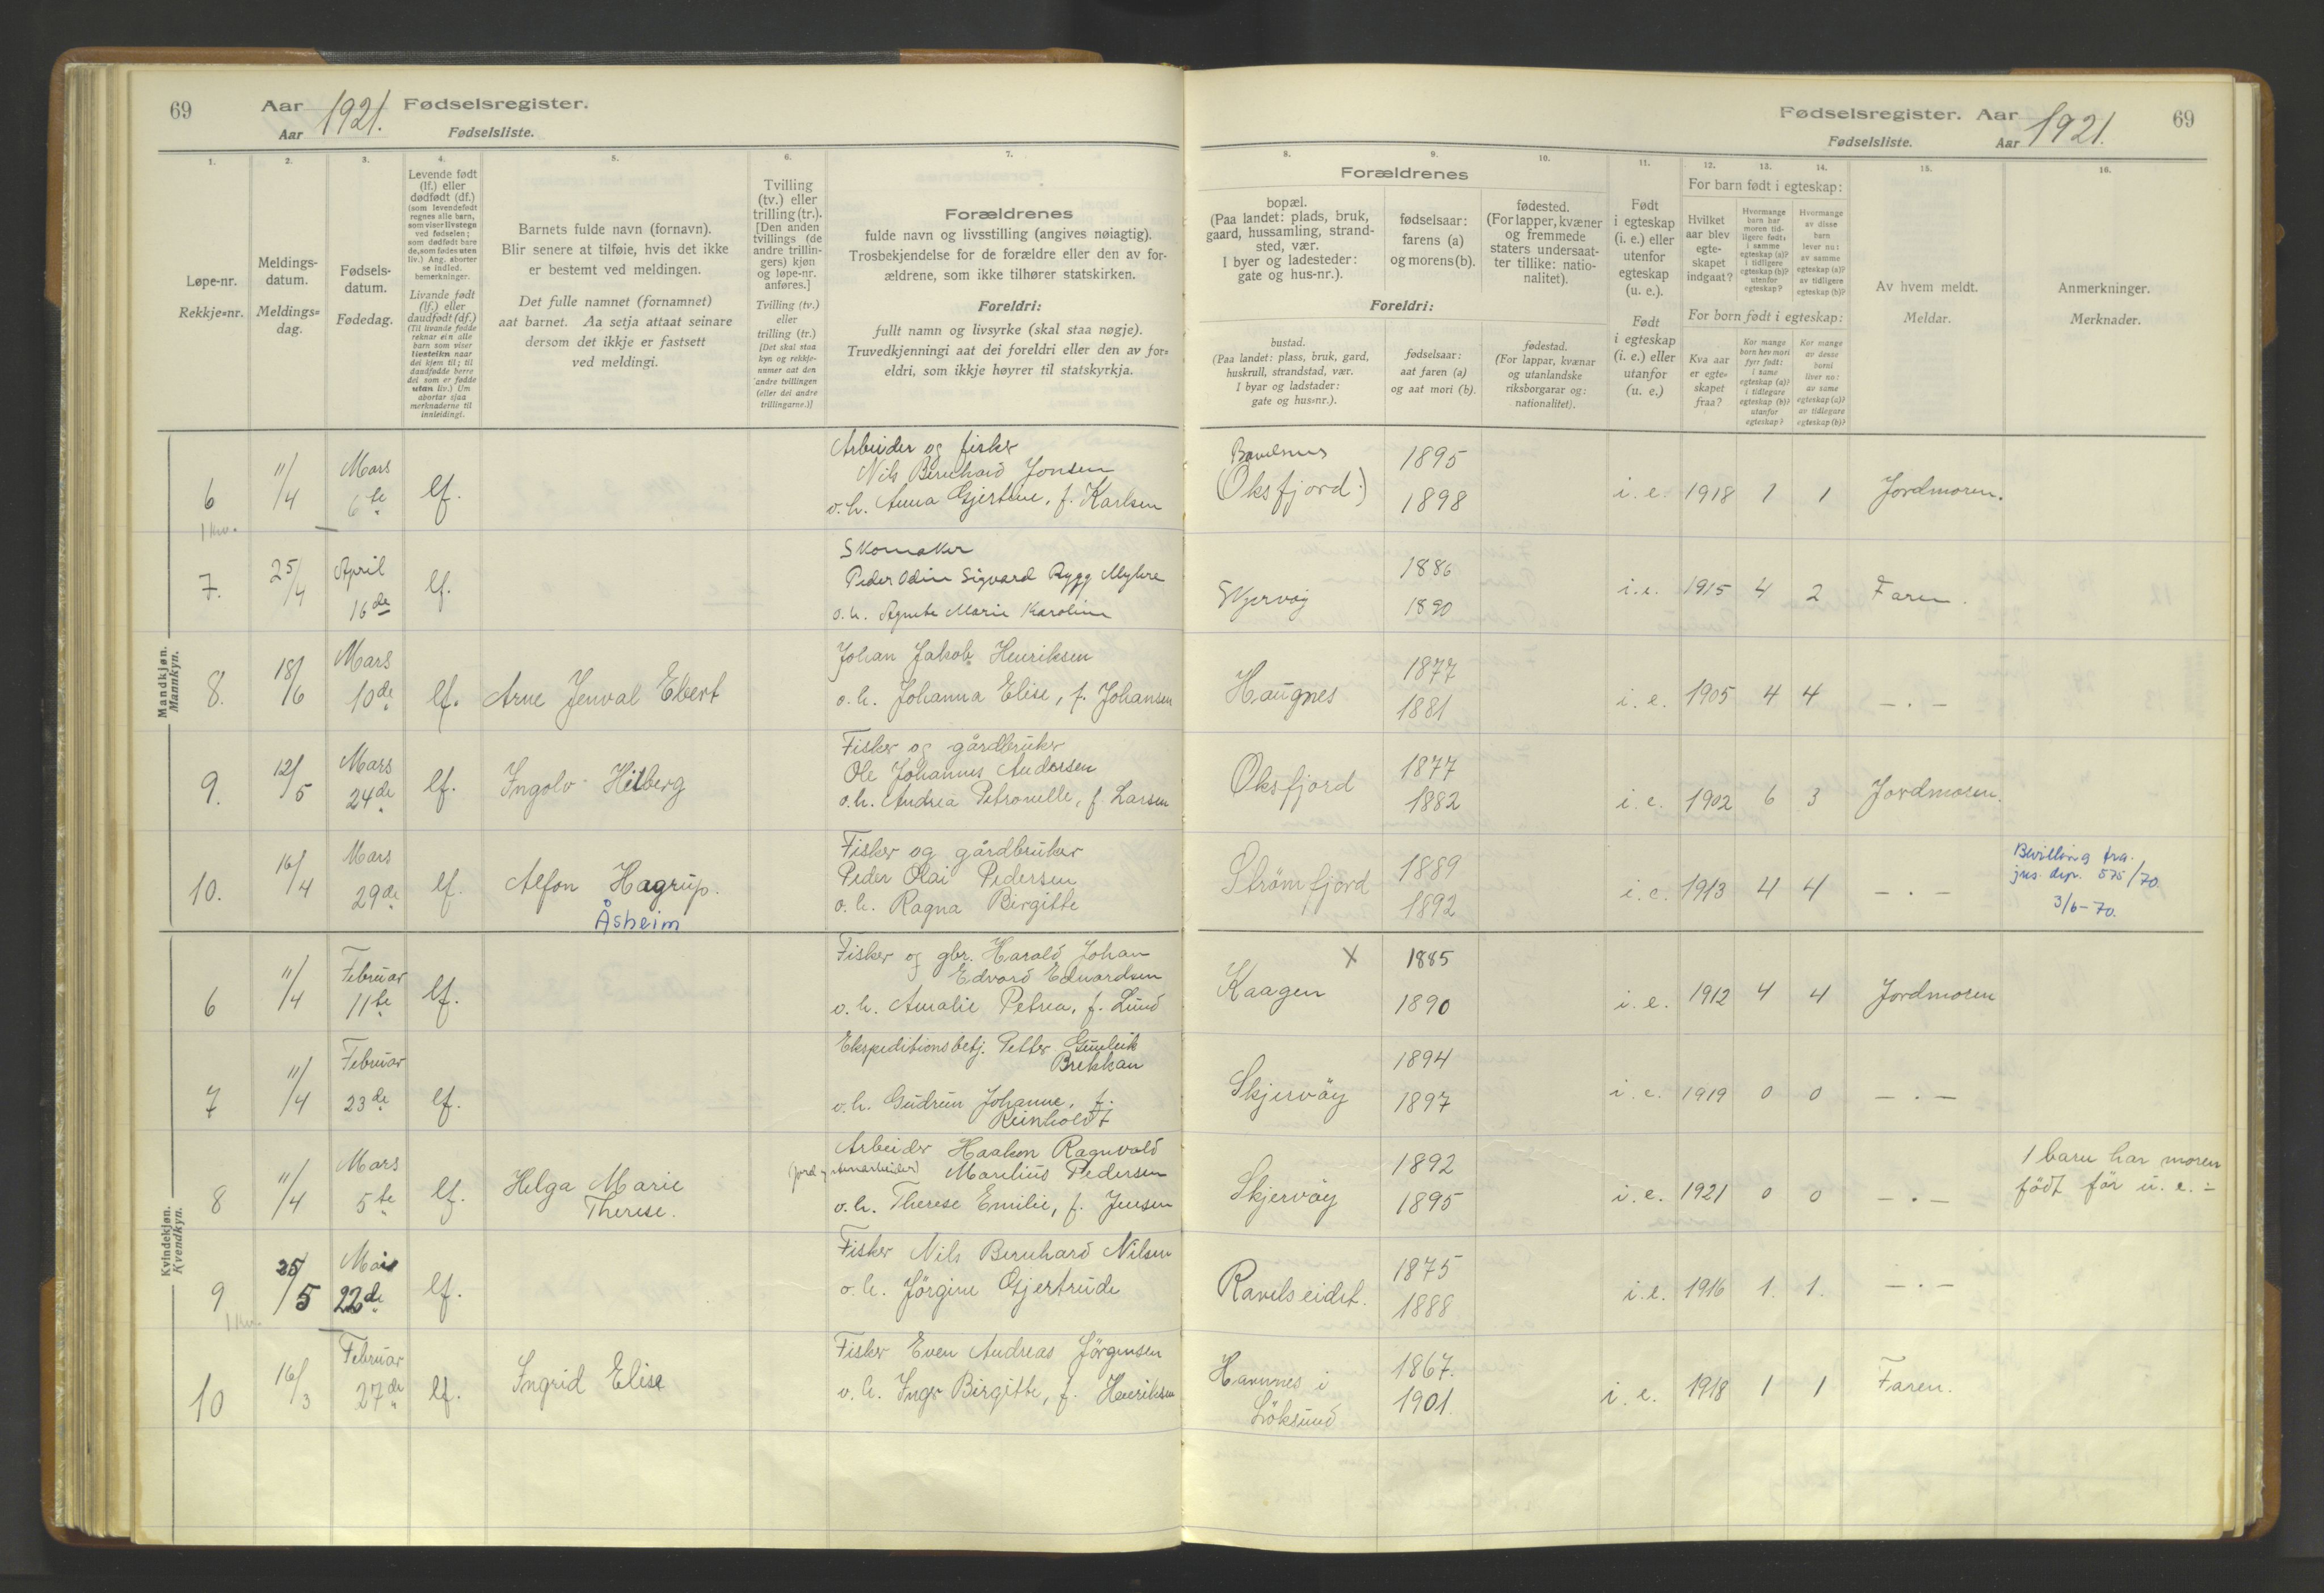 69 Aar 1921. Fødselsregister.
Aar Fødselsliste.
1. 2. 3. 4. 5. 6. 7.
Løpe-nr.
Rekkje=nr.
Meldings-
datum.
Meldings=
dag.
Fødsels-
datum.
Fødedag.
Levende født
(lf.) eller
dødfødt (df.)
(som levendefødt
regnes alle barn,
som viser livstegn
ved fødselen;
som dødfødt bare
de, som fødes uten
liv.) Ang. aborter
se indled.
bemerkninger.
Livande født
(lf.) eller
daudfødt (df.)
(Til livande fødde
reknar ein alle
born som viser
livsteikn naar
dei kjem til; til
daudfødde berre
dei som er fødde
utan liv.) Um
abortar sjaa
merknaderne til
innleidingi.
Barnets fulde navn (fornavn).
Blir senere at tilføie, hvis det ikke
er bestemt ved meldingen.
Det fulle namnet (fornamnet)
aat barnet. Aa setja attaat seinare
dersom det ikkje er fastsett
ved meldingi.
Tvilling
(tv.) eller
trilling (tr.).
[Den anden
tvillings (de
andre trillin-
gers) kjøn
og løpe-nr.
anføres.]
Tvilling (tv.)
eller
trilling (tr.)
[Det skal staa
kyn og rekkje-
numer aat den
andre tvillingen
(eller dei andre
trillingarne.)]
Forældrenes
fulde navn og livsstilling (angives nøiagtig).
Trosbekjendelse for de forældre eller den av for-
ældrene, som ikke tilhører statskirken.
Foreldri:
fullt namn og livsyrke (skal staa nøgje).
Truvedkjenningi aat dei foreldri eller den av for=
eldri, som ikkje høyrer til statskyrkja.
Mandkjøn.
Mannkyn.
6 11/4 Mars 6te lf.
Arbeider og fisker
Nils Bernhard Jonsen
o.h. Anna Gjertine, f. Karlsen
1 kv.
7. 25/4 April 16de lf.
Skomaker
Peder Odin Sigvard Rygg Myhre
o.h. Agnete Marie Karoline
8. 18/6 Mars 10de lf. Arne Jenval Ebert
Johan Jakob Henriksen
o.h. Johanna Elise, f. Johansen
9. 12/5 Mars 24de lf. Ingolv Hilberg
Fisker og gårdbruker
Ole Johannes Andersen
o.h. Andrea Petronelle, f. Larsen
10. 16/4 Mars 29de lf. Alfon Hagrup.
Åsheim
Fisker og gårdbruker
Peder Olai Pedersen
o.h. Ragna Birgitte
Kvindekjøn.
Kvendkyn.
6 11/4 Februar 11te lf.
Fisker og gbr. Harald Johan
Edvard Edvardsen
o.h. Amalie Petrea, f. Lund
7 11/4 Februar 23de lf.
Ekspeditionsbetj. Petter Gunleik
Brekkan
o.h. Gudrun Johanne, f.
Reinholdt
8 11/4 Mars 5te lf. Helga Marie
Therese.
Arbeider Haakon Ragnvald
Marelius Pedersen
o.h. Therese Emilie, f. Jensen
9 25/5 22de lf.
Fisker Nils Bernhard Nilsen
o.h. Jörgine Gjertrude
1 kv.
10 16/3 Februar 27de lf. Ingrid Elise
Fisker Even Andreas Jörgensen
o.h. Inger Birgitte, f. Henriksen
Fødselsregister. Aar 1921. 69
Fødselsliste. Aar
8. 9. 10. 11. 12. 13. 14. 15. 16.
Forældrenes
bopæl.
(Paa landet: plads, bruk,
gaard, hussamling, strand-
sted, vær.
I byer og ladesteder:
gate og hus-nr.).
fødselsaar:
farens (a)
og morens (b).
fødested.
(For lapper, kvæner
og fremmede
staters undersaat-
ter tillike: natio-
nalitet).
Foreldri:
bustad.
(Paa landet: plass, bruk, gard,
huskrull, strandstad, vær.
I byar og ladstader:
gate og hus=nr.).
fødselsaar:
aat faren (a)
og aat mori (b).
fødestad.
(For lappar, kvænar
og utanlandske
riksborgarar og:
nationalitet).
Født
i egteskap
(i. e.) eller
utenfor
egteskap
(u. e.).
Født
i egteskap
(i. e.) eller
utanfor
(u. e.)
For barn født i egteskap:
Hvilket
aar blev
egte-
skapet
indgaat?
Hvormange
barn har
moren tid-
ligere født:
i samme
egteskap (a)?
i tidligere
egteskap (b)?
utenfor
egteskap?
Hvormange
av disse
barn
lever nu:
av samme
egteskap (a)?
av tidligere
egteskap (b)?
For born født i egteskap:
Kva aar
er egte=
skapet
fraa?
Kor mange
born hev mori
fyrr født:
i same
egteskap (a)?
i tidlegare
egteskap (b)?
utanfor
egteskap?
Kor mange
av desse
borni
liver no:
av same
egteskap (a)?
av tidlegare
egteskap (b)?
Av hvem meldt.
Meldar.
Anmerkninger.
Merknader.
(Oksfjord.) 1895 1898 i. e. 1918 1 1 Jordmoren.
Skjervøy 1886 1890 i. e. 1915 4 2 Faren.
Haugnes 1877 1881 i. e. 1905 4 4 — . —
Oksfjord 1877 1882 i. e. 1902 6 3 Jordmoren.
Strømfjord 1889 1892 i. e. 1913 4 4 — . —
Bevilling fra
jus. dep. 575/70
3/6-70.
Kaagen X 1885 1890 i. e. 1912 4 4 Jordmoren
Skjervöy 1894 1897 i. e. 1919 0 0 — . —
Skjervöy 1892 1895 i. e. 1921 0 0 — . —
1 barn har moren
födt för u. e. -
Ravelseidet. 1875 1888 i. e. 1916 1. 1. — . —
Havnnes i
Löksund 1867. 1901. i. e. 1918 1 1 Faren.